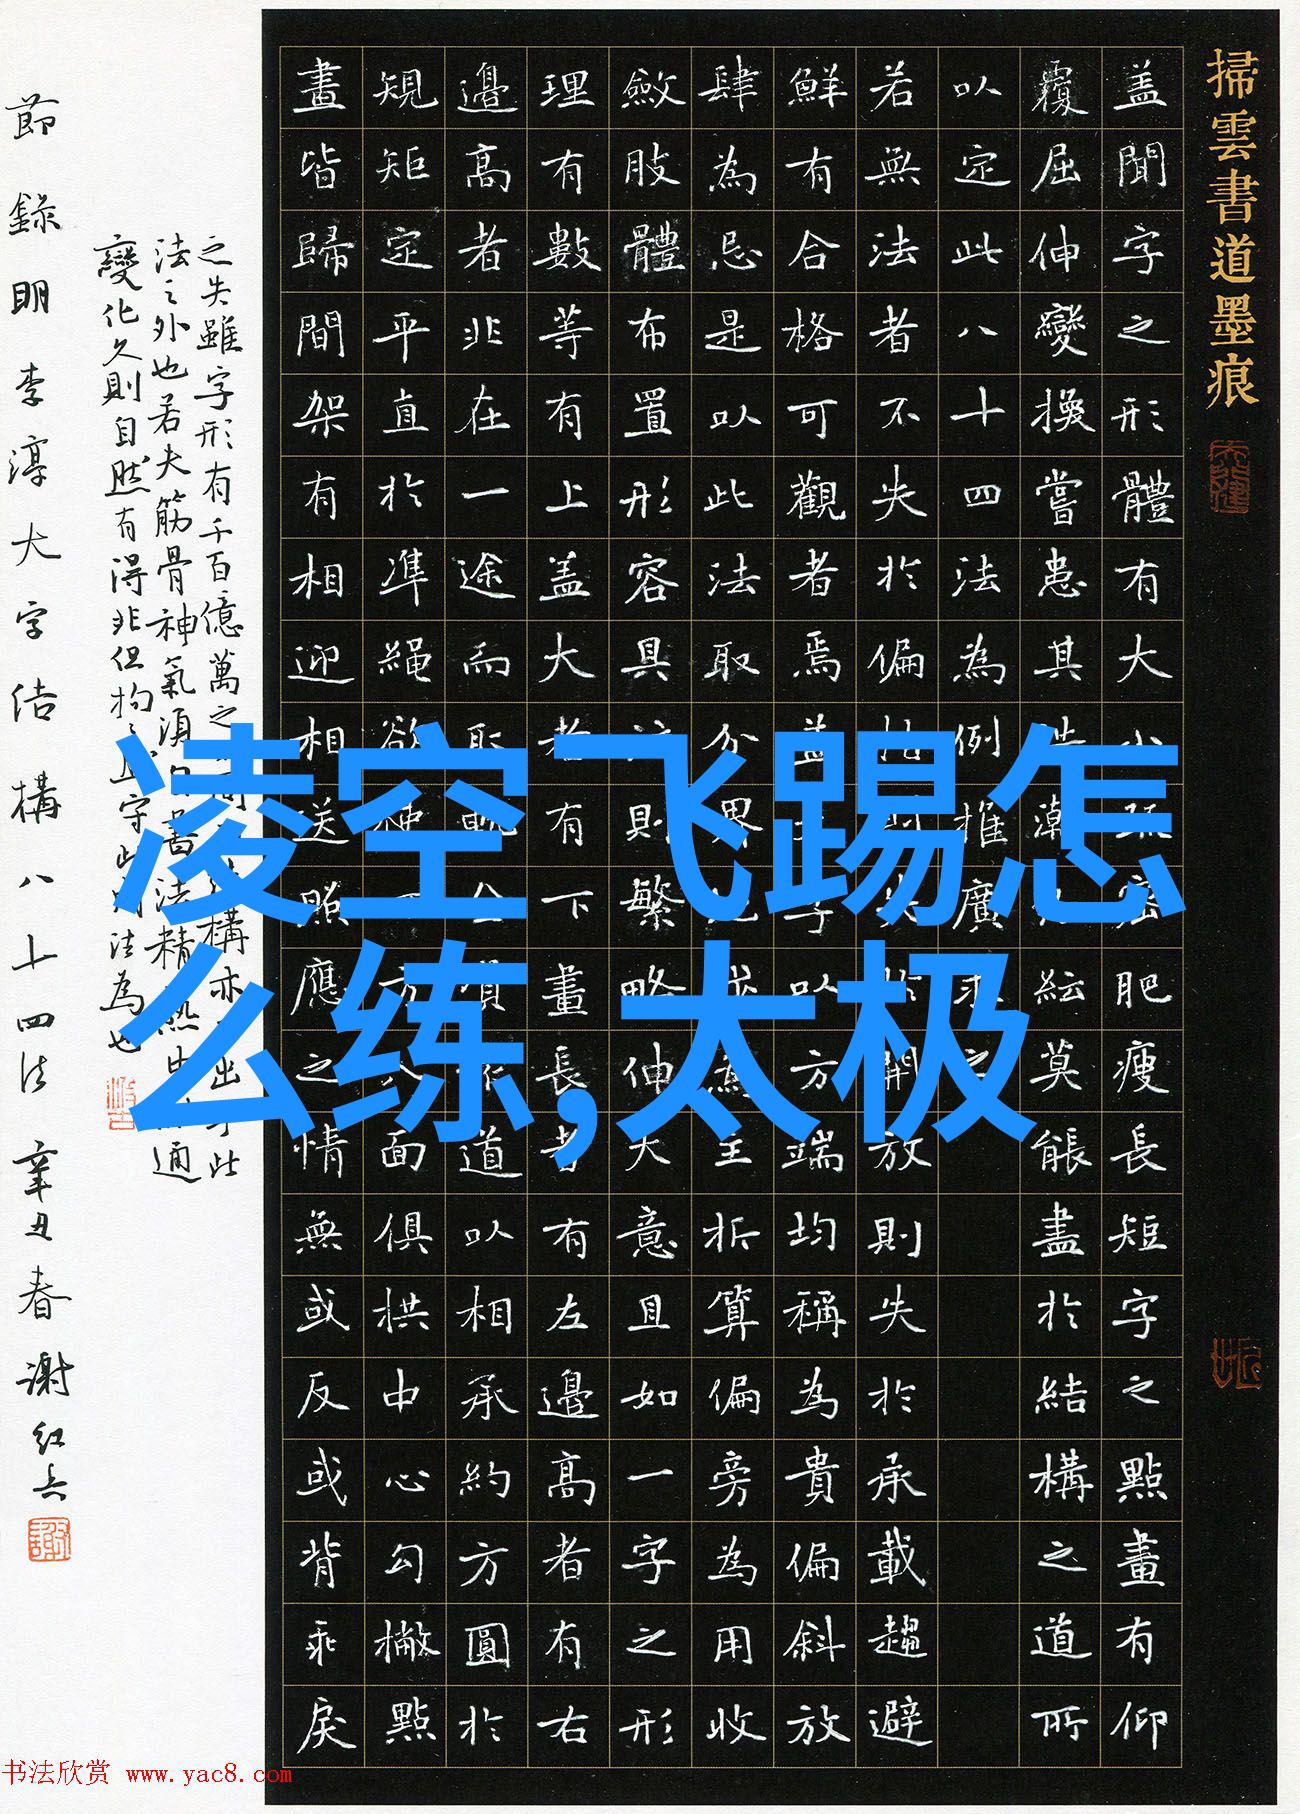 掃雲書道墨痕
盖聞字之形體有大小疏密肥瘦長短字之點畫有仰
覆屈伸變換嘗患其浩瀚紜莫能盡於結構之道所
以定此八十四法為例推廣求之
若無法者不失於偏枯則失於開放則失於承載趨避
鮮有合格可觀者焉盖主字以方端均稱為貴偏斜放
肆為忌是以此法取分界地為主折算偏旁為用收
斂肢體布置形容具則繁略伸大意且如一字之形
理有數等有上盖大者有下畫長者有左邊高者有右
邊高者非在一途而取道以相承約方圓於
規矩定平直於準繩欲使方八面俱拱中心勾撇點
畫皆歸間架有相迎相送照應之情無或反或背乖戾
之失雖字形有千百億萬之構亦出乎此
法之外也若夫筋骨神氣須書法精熟通
變化久則自然有得非但拘守此法為也
節錄明李淳大字结構八十四法辛丑春謝紅兵
凌空飞踢怎
么练,太极
书法欣赏 www.yac8.com